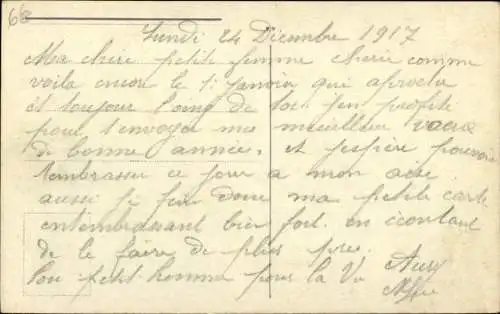 68
Lundi 24 Dicembre 1917
Ma chere petit femme cherie comme
voila encore le 1r janvier qui aproche
et toujour loing de toi j'en profite
pour t'envoyer me meilleur vœux
de bonne année. et j'espère pouvoir
t'embrasser ce jour a mon aise
aussi je fini donc ma petite carte
en t'embrassant bien fort. en
de le faire de plus pres.
ton petit homme pour la Vie